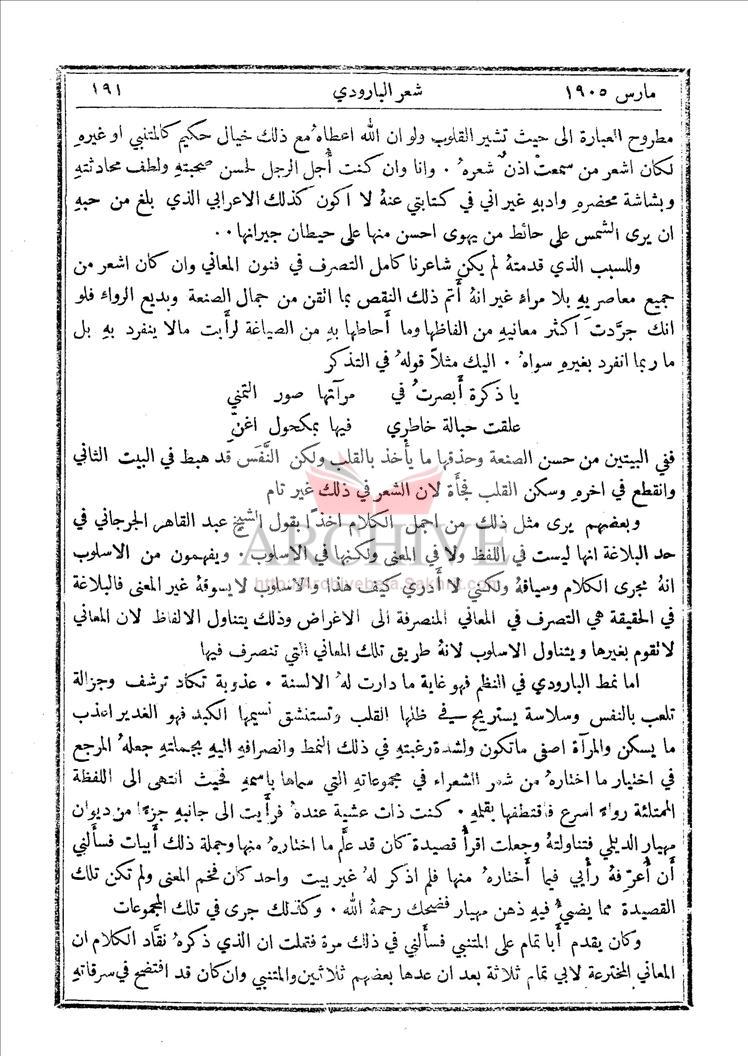 مارس ١٩٠٥
شعر البارودي
١٩١
مطروح العبارة الى حيث تشير القلوب ولو ان الله اعطاهُ مع ذلك خيال حكيم كالمتنبي او غيرهِ
لكان اشعر من سمعتْ اذنٌ شعرهُ . وانا وان كنت أُجل الرجل لحسن صحبتهِ ولطف محادثتهِ
وبشاشة محضرهِ وادبهِ غير اني في كتابتي عنهُ لا اكون كذلك الاعرابي الذي بلغ من حبهِ
ان يرى الشمس على حائط من يهوى احسن منها على حيطان جيرانها . .
وللسبب الذي قدمتهُ لم يكن شاعرنا كامل التصرف في فنون المعاني وان كان اشعر من
جميع معاصريهِ بلا مراء غير انهُ أتم ذلك النقص بما اتقن من جمال الصنعة وبديع الرواء فلو
انك جرَّدتَ اكثر معانيهِ من الفاظها وما أحاطها بهِ من الصياغة لرأيت مالا ينفرد بهِ بل
ما ربما انفرد بغيرهِ سواهُ . اليك مثلاً قولهُ في التذكر
يا ذكرة أَبصرتُ في مرآتها صور التمني
علقت حبالة خاطري فيها بمكحول اغنِّ
ففي البيتين من حسن الصنعة وحذقها ما يأخذ بالقلب ولكن النَّفَس قد هبط في البيت الثاني
وانقطع في اخرهِ وسكن القلب فجأَة لان الشعر في ذلك غير تام
وبعضهم يرى مثل ذلك من اجمل الكلام اخذًا بقول الشيخ عبد القاهر الجرجاني في
حد البلاغة انها ليست في اللفظ ولا في المعنى ولكنها في الاسلوب . ويفهمون من الاسلوب
انهُ مجرى الكلام وسياقهُ ولكني لا أَدري كيف هذا والاسلوب لا يسوقهُ غير المعنى فالبلاغة
في الحقيقة هي التصرف في المعاني المنصرفة الى الاغراض وذلك يتناول الالفاظ لان المعاني
لا تقوم بغيرها ويتناول الاسلوب لانهُ طريق تلك المعاني التي تنصرف فيها
اما نمط البارودي في النظم فهو غاية ما دارت لهُ الالسنة . عذوبة تكاد ترشف وجزالة
تلعب بالنفس وسلاسة يستريح في ظلها القلب وتستنشق نسيمها الكبد فهو الغدير اعذب
ما يسكن والمرآة اصفى ماتكون ولشدة رغبتهِ في ذلك النمط وانصرافهِ اليهِ بجملتهِ جعلهُ المرجع
في اختيار ما اختارهُ من شعر الشعراء في مجموعاتهِ التي سماها باسمهِ فحيث انتهى الى اللفظة
الممتلئة رواءً اسرع فاقتطفها بقلمهِ . كنت ذات عشية عندهُ فرأيت الى جانبهِ جزءًا من ديوان
مهيار الديلي فتناولتهُ وجعلت اقرأُ قصيدة كان قد علَّم ما اختارهُ منها وجملة ذلك أَبيات فسأَلني
أَن أُعرِّفهُ رأيي فيما أَختارهُ منها فلم اذكر لهُ غير بيت واحد كان فخم المعنى ولم تكن تلك
القصيدة مما يضيءُ فيهِ ذهن مهيار فضحك رحمهُ الله . وكذلك جرى في تلك المجموعات
وكان يقدم أَبا تمام على المتنبي فسأَلني في ذلك مرة فقلت ان الذي ذكرهُ نقَّاد الكلام ان
المعاني المخترعة لابي تمام ثلاثة بعد ان عدها بعضهم ثلاثين والمتنبي وان كان قد افتضح في سرقاتهِ
ARCHIVE